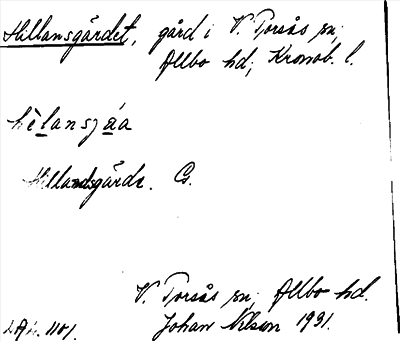 Hillansgärdet, gård i V. Torsås sn,
Allbo hd, Kronob. l.
hèlansjáa
Hillandsgärde. G.
V. Torsås sn, Allbo hd.
Johan Nilson 1931.